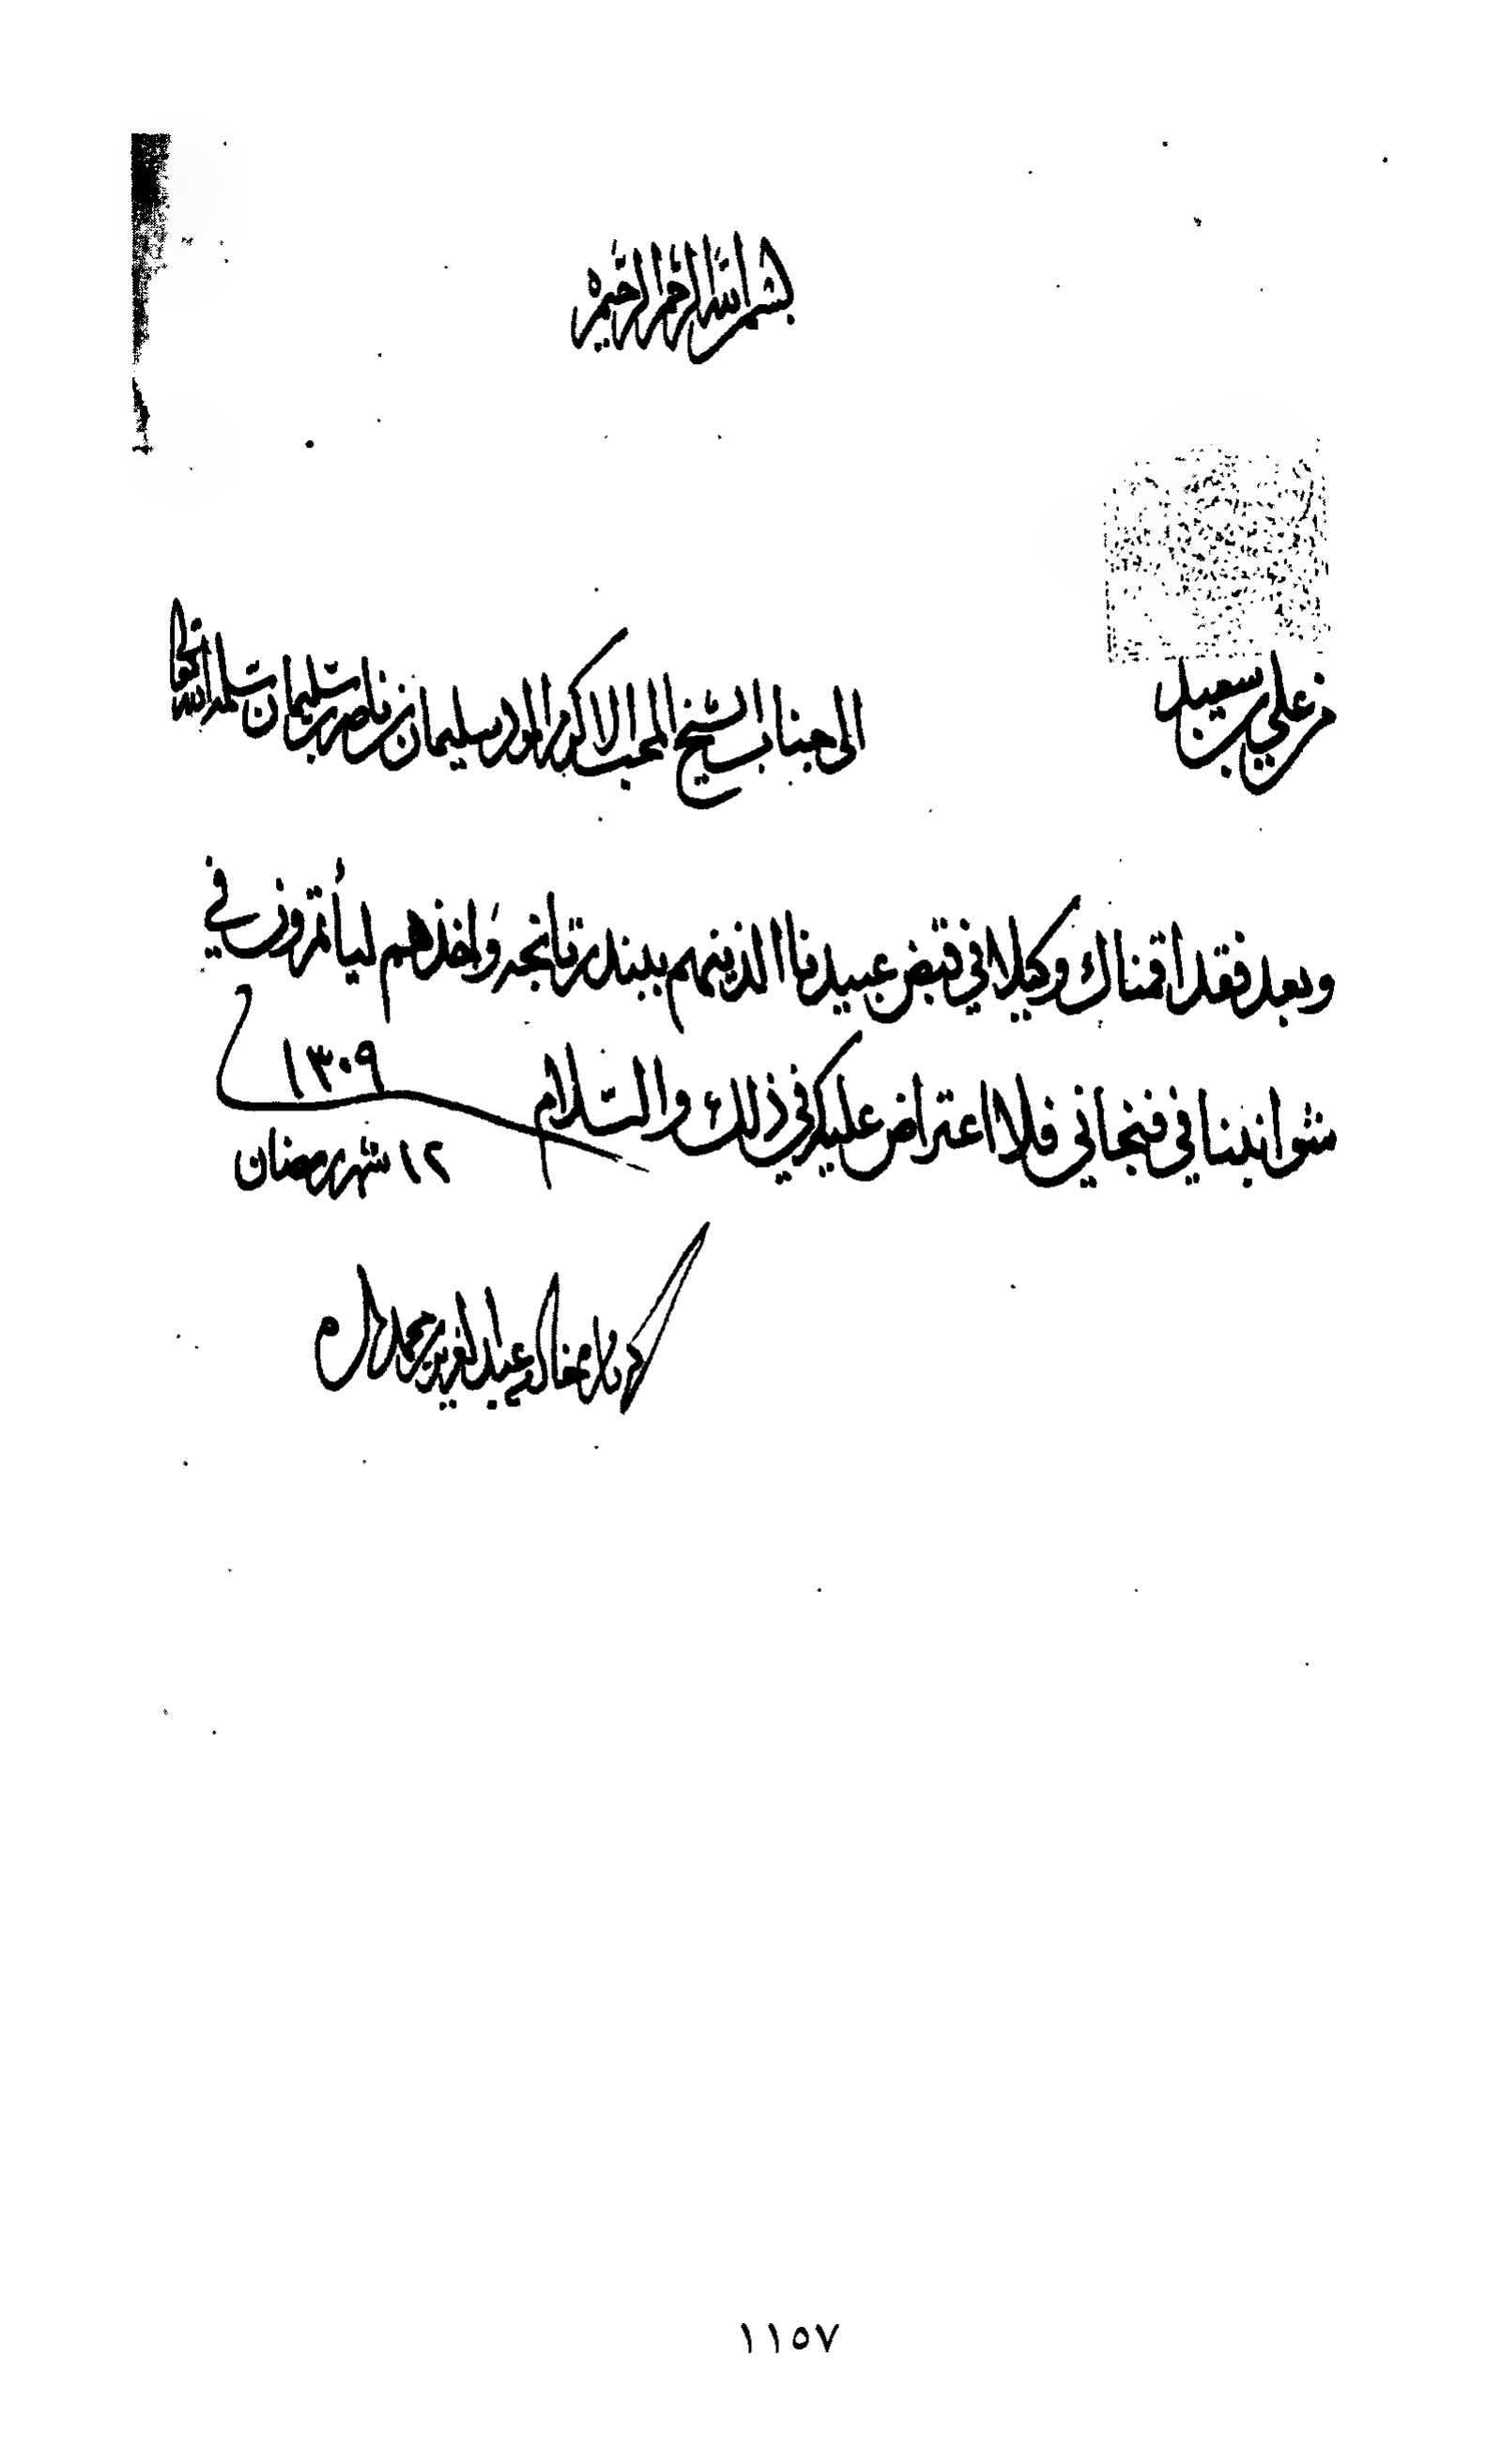 بسم الله الرحمن الرحيم
من علي بن سعيد
الى جناب الشيخ المحب الاكرم الود سليمان بن ناصر بن سليمان سلمه الله تعالى
وبعد فقد اقمناك وكيلا في قبض عبيدنا الذينهم ببندر تانجه واخذهم في
شوانبنا في فنجاني فلا اعتراض عليكم في ذلك والسلام
١٣٠٩
١٢ شهر رمضان
عبد العزيز بن محمد
١١٥٧